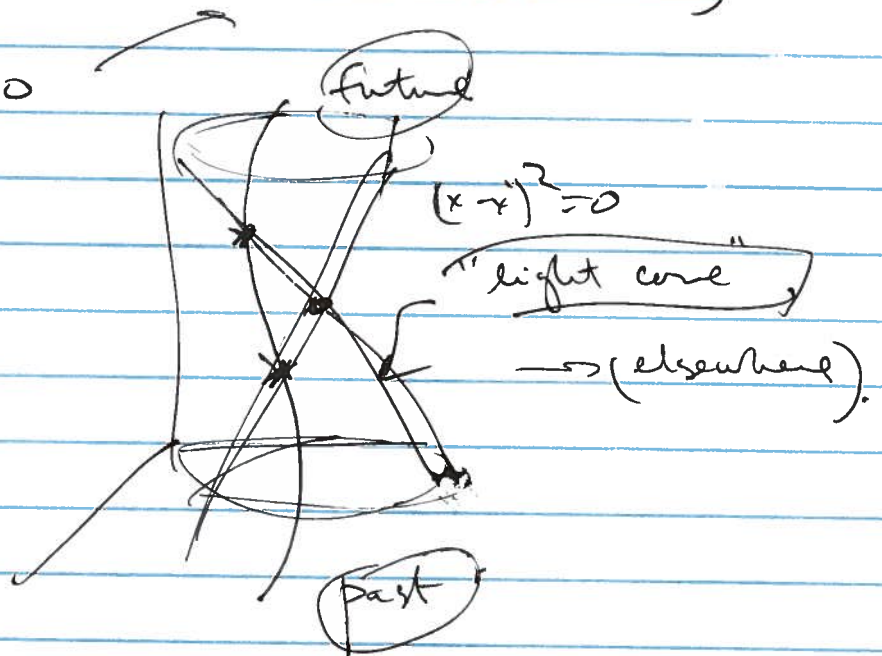 0
future
(x-x)²=0
"light cone"
→ (elsewhere).
past